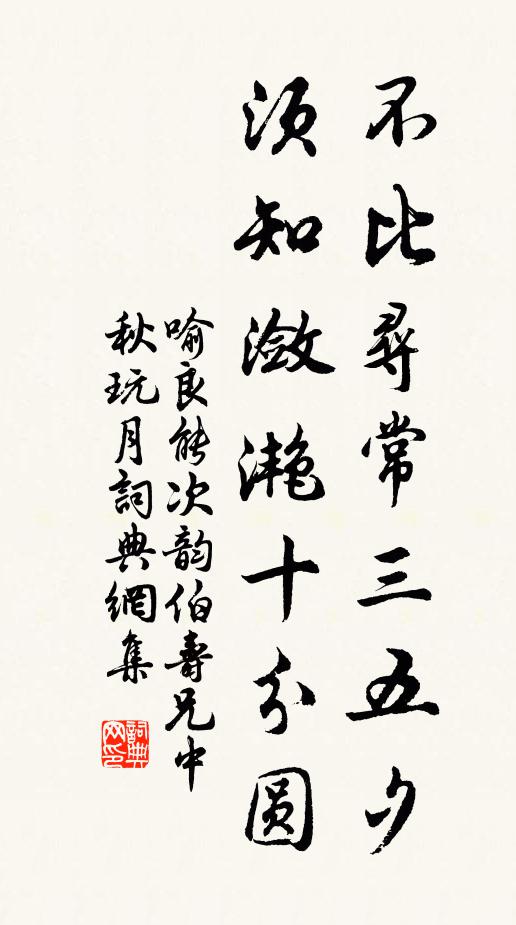 不比尋常三五夕
須知瀲灧十分圆
喻良能次韵伯壽兄中
秋玩月詞典網集
詞典
网印